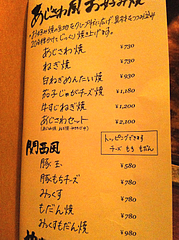 あじさわ風 お好み焼
あじさわ焼 ¥730
ねぎ焼 ¥730
白ねぎめんたい焼 ¥930
茄子じゃがチーズ焼 ¥1,180
牛すじねぎ焼 ¥1,200
あじさわセット ¥2,100
トッピングできます
チーズ もち もだん
関西風
豚玉 ¥580
豚もちチーズ ¥780
みっくす ¥780
もだん焼 ¥780
みっくすもだん焼 ¥980